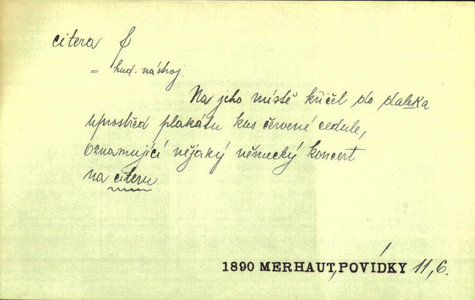 citera f
= hud. nástroj
Na jeho místě křičel do daleka
uprostřed plakátu kus červené cedule,
oznamující nějaký německý koncert
na citeru
1890 MERHAUT, POVÍDKY 11, 6.